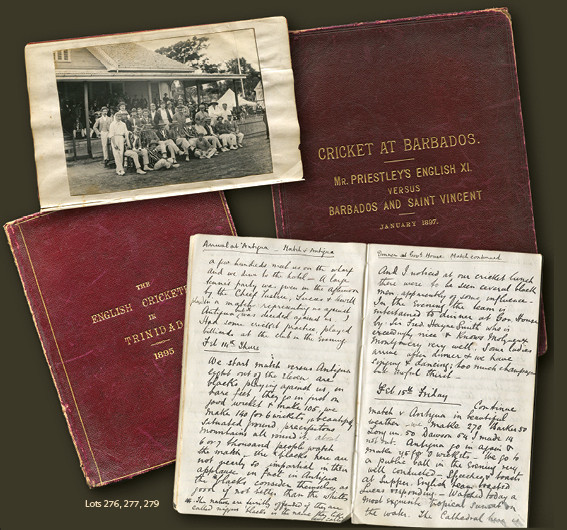 CRICKET AT BARBADOS.
MR. PRIESTLEY'S ENGLISH XI.
VERSUS
BARBADOS AND SAINT VINCENT
JANUARY 1897.
THE
ENGLISH CRICKETERS
IN
TRINIDAD
1895
Arrival at Antigua - Match v Antigua
a few hundreds met us on the wharf
and we drive to the hotel - A large
tennis party was given in the afternoon
by the Chief Justice, Lucas &
in a match representing us against
Antigua was decided against us. I
Had some cricket practice, played
billiards at the club in the evening
Feb 14th Thurs
We start match versus Antigua
Eight out of the eleven are
blacks playing against us in
bare feet, they go in first on
good wicket & make 105, we
make 140 for 6 wickets, a beautifully
situated ground, precipitous
mountains all round it about
6 or 7 thousand people watch
the match - The blacks here are
not nearly so impartial in their
applause, in fact in Antigua
the blacks consider themselves as
good if not better than the whites
The natives are heartily offended if they are
called
Dinner at Govt House. Match continued
And I noticed at our cricket lunch
there were to be seen several black
men apparently of some influence -
In the evening the team is
entertained to dinner at Gov. House
by Sir Fred Haynes Smith who is
exceedingly nice & knows Molyneux
Montgomery very well, Some ladies
arrive after dinner & we have
singing & dancing; too much champagne
but awful thirst
Feb 15th Friday
Continue
match v Antigua in beautiful
weather - we make 270
50 Dawson 54 I made 14
not out. Antigua go in again &
make 45 for 0 wickets - We go to
a public ball in the evening very
well conducted - Speeches & toasts
at supper, English Team toasted
Lucas responding - Watched today a
most exquisite tropical sunset on
the water. The Cathedral
Lots 276, 277, 279